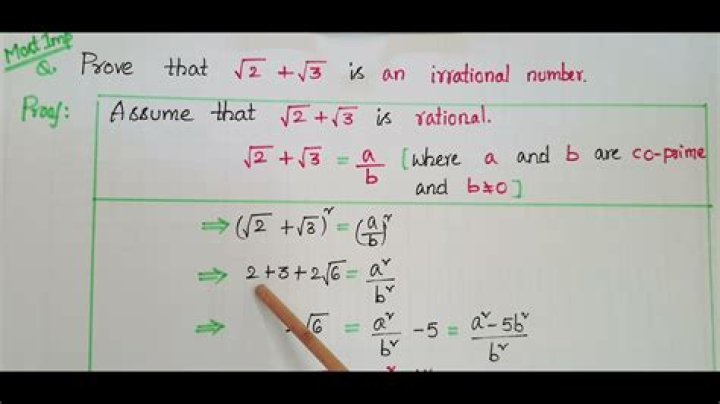 Most Imp
Q. Prove that √2 + √3 is an irrational number.
Proof: Assume that √2 + √3 is rational.
√2 + √3 = a/b [where a and b are co-prime
and b≠0]
⇒ (√2 + √3)² = (a/b)²
⇒ 2 + 3 + 2√6 = a²/b²
⇒ √6 = a²/b² - 5 = a² - 5b²/b²